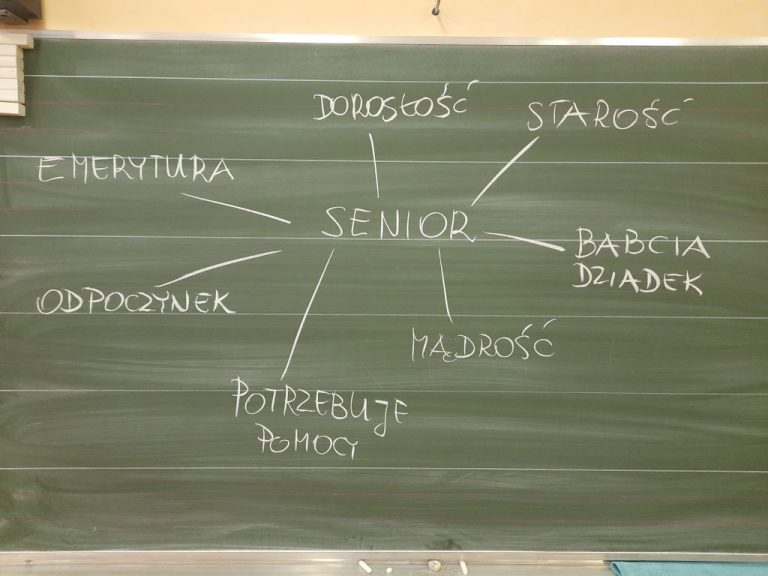 DOROSŁOŚĆ
STAROŚĆ
EMERYTURA
SENIOR
BABCIA
DZIADEK
ODPOCZYNEK
MĄDROŚĆ
POTRZEBUJE
POMOCY